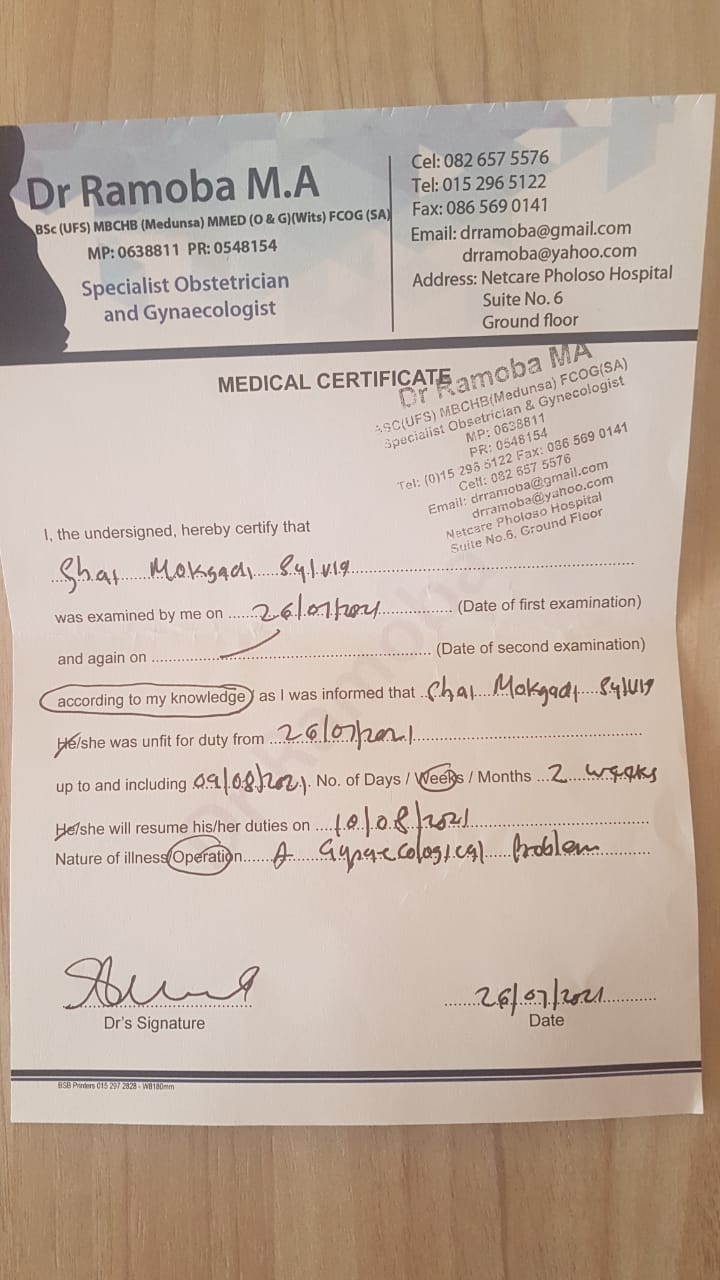 Dr Ramoba M.A
BSc (UFS) MBCHB (Medunsa) MMED (O & G)(Wits) FCOG (SA)
MP: 0638811 PR: 0548154
Specialist Obstetrician
and Gynaecologist
Cel: 082 657 5576
Tel: 015 296 5122
Fax: 086 569 0141
Email: drramoba@gmail.com
drramoba@yahoo.com
Address: Netcare Pholoso Hospital
Suite No. 6
Ground floor
MEDICAL CERTIFICATE
Dr Ramoba MA
BSC(UFS) MBCHB(Medunsa) FCOG(SA)
Specialist Obsetrician & Gynecologist
MP: 0638811
PR: 0548154
Tel: (0)15 296 5122 Fax: 086 569 0141
Cell: 082 657 5576
Email: drramoba@gmail.com
drramoba@yahoo.com
Netcare Pholoso Hospital
Suite No.6, Ground Floor
I, the undersigned, hereby certify that
Shai Mokgadi Sylvia
was examined by me on 26/07/2021 (Date of first examination)
and again on (Date of second examination)
according to my knowledge / as I was informed that Shai Mokgadi Sylvia
He/she was unfit for duty from 26/07/2021
up to and including 09/08/2021. No. of Days / Weeks / Months 2 weeks
He/she will resume his/her duties on 10/08/2021
Nature of illness/Operation A Gynaecological Problem
Dr's Signature
26/07/2021
Date
BSB Printers 015 297 2828 - WB180mm